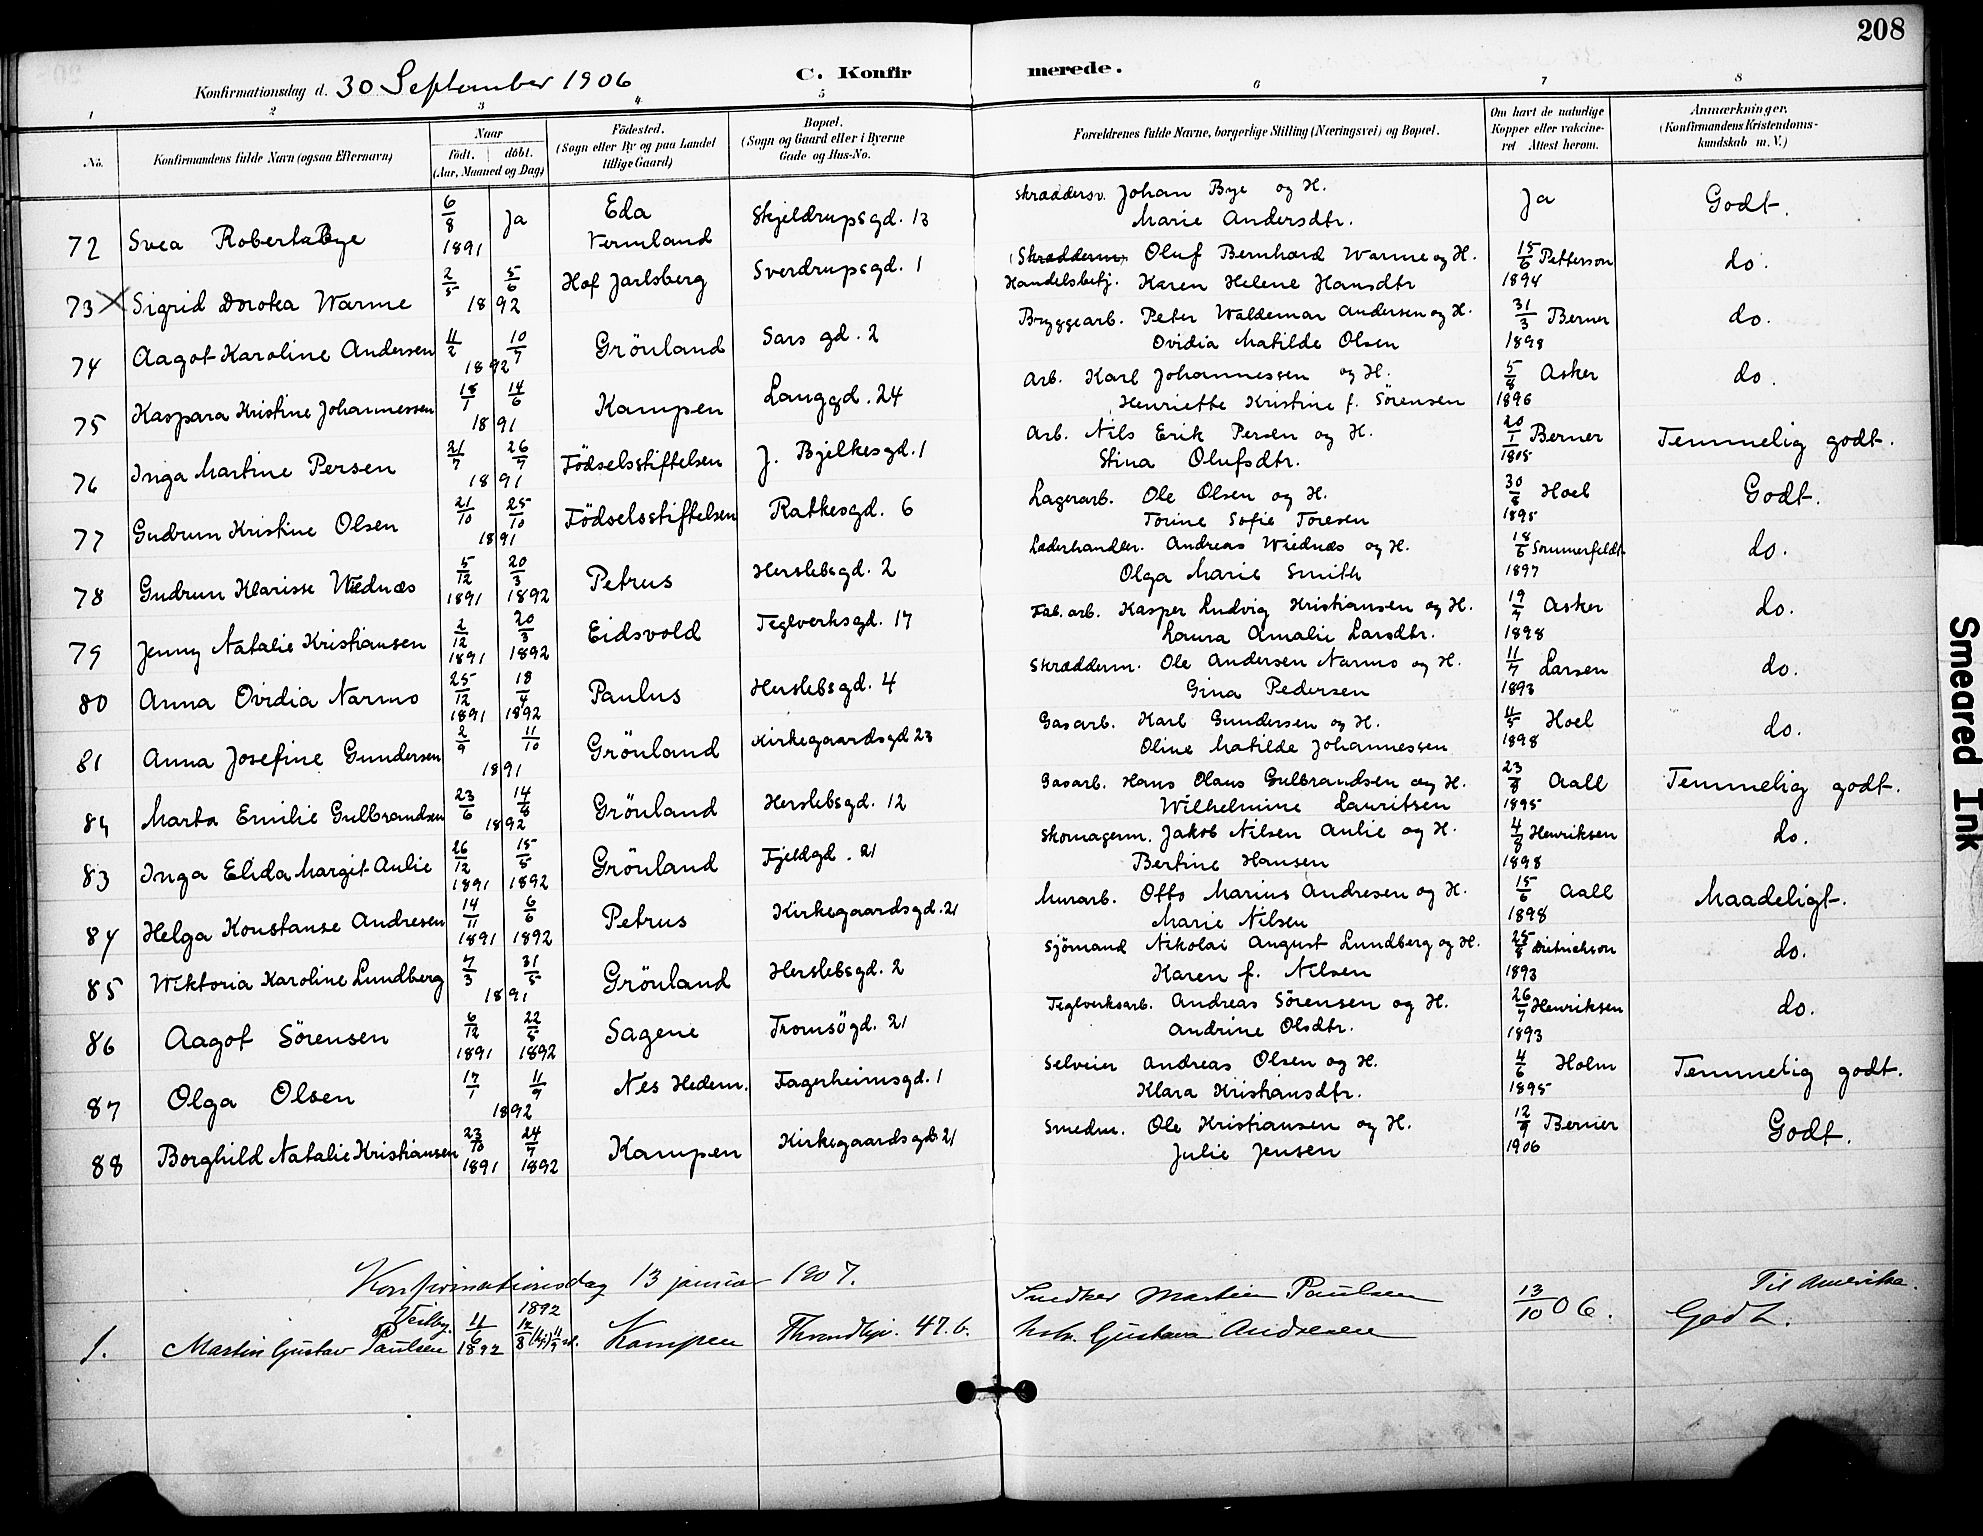 208
Konfirmationsdag d. 30 September 1906
C. Konfirmerede.
1 2 3 4 5 6 7 8
No. Konfirmandens fulde Navn (ogsaa Efternavn) Naar födt. döbt. (Aar, Maaned og Dag) Födested. (Sogn eller By og paa Landet tillige Gaard) Bopæl. (Sogn og Gaard eller i Byerne Gade og Hus-No. Forældrenes fulde Navne, borgerlige Stilling (Næringsvei) og Bopæl. Om havt de naturlige Kopper eller vakcineret Attest herom. Anmærkninger. (Konfirmandens Kristendomskundskab m. V.)
72 Svea Roberta Bye 6/8 1891 Ja Eda Vermland Skjeldrupsgd. 13 Skræddersv. Johan Bye og H. Marie Andersdtr. Ja Godt.
73 X Sigrid Dorotea Warme 2/5 5/6 1892 Hof Jarlsberg Sverdrupsgd. 1 (Skrædderm) Handelsbetj. Oluf Bernhard Warme og H. Karen Helene Hansdtr 15/6 1894 Petterson do.
74 Aagot Karoline Andersen 11/2 10/7 1892 Grönland Sars gd. 2 Bryggearb. Peter Waldemar Andersen og H. Ovidia Matilde Olsen 31/3 1898 Berner do.
75 Kaspara Kristine Johannessen 18/1 14/6 1891 Kampen Langgd. 24 Arb. Karl Johannessen og H. Henriette Kristine f. Sörensen 5/8 1896 Asker do.
76 Inga Martine Persen 21/7 26/9 1891 Födselsstiftelsen J. Bjelkesgd. 1 Arb. Nils Erik Persen og H. Stina Olufsdtr. 20/1 Berner Temmelig godt.
77 Gudrun Kristine Olsen 21/10 25/10 1891 Födselsstiftelsen Ratkesgd. 6 Lagerarb. Ole Olsen og H. Torine Sofie Toresen 30/8 1895 Hoel Godt.
78 Gudrun Klarisse Wiednæs 5/12 1891 20/3 1892 Petrus Herslebsgd. 2 Læderhandler. Andreas Wiednæs og H. Olga Marie Smith 18/6 1897 Sommerfeldt do.
79 Jenny Natalie Kristiansen 2/12 1891 20/3 1892 Eidsvold Teglverksgd. 17 Fab. arb. Kasper Ludvig Kristiansen og H. Laura Amalie Larsdtr. 19/9 1898 Asker do.
80 Anna Ovidia Narmo 25/12 1891 18/4 1892 Paulus Herslebsgd. 4 Skrædderm. Ole Andersen Narmo og H. Gina Pedersen 11/7 1893 Larsen do.
81 Anna Josefine Gundersen 2/9 11/10 1891 Grönland Kirkegaardsgd 23 Gasarb. Karl Gundersen og H. Oline Matilde Johannessen 11/5 1898 Hoel do.
84 Marta Emilie Gulbrandsen 23/6 14/8 1892 Grönland Herslebsgd. 12 Gasarb. Hans Olaus Gulbrandsen og H. Wilhelmine Lauritsen 23/8 1895 Aall Temmelig godt.
83 Inga Elida Margit Aulie 26/12 1891 15/5 1892 Grönland Fjeldgd. 21 Skomagerm. Jakob Nilsen Aulie og H. Bertine Hansen 4/8 1898 Henriksen do.
84 Helga Konstanse Andresen 14/11 1891 6/6 1892 Petrus Kirkegaardsgd. 21 Murarb. Otto Marius Andresen og H. Marie Nilsen 15/6 1898 Aall Maadeligt.
85 Wiktoria Karoline Lundberg 7/3 31/5 1891 Grönland Herslebsgd. 2 Sjömand Nikolai August Lundberg og H. Karen f. Nilsen 25/8 1893 Dietrichson do.
86 Aagot Sörensen 6/12 1891 22/5 1892 Sagene Tromsögd. 21 Teglverksarb. Andreas Sörensen og H. Andrine Olsdtr. 26/7 1893 Henriksen do.
87 Olga Olsen 17/1 11/9 1892 Nes Hedem. Fagerheimsgd. 1 Selveier Andreas Olsen og H. Klara Kristiansdtr. 4/6 1895 Holm Temmelig godt.
88 Borghild Natalie Kristiansen 23/10 1891 24/7 1892 Kampen Kirkegaardsgd. 21 Smedm. Ole Kristiansen og H. Julie Jensen 12/9 1906 Berner Godt.
Konfirmationsdag 13 januar 1907.
1. Martin Gustav Paulsen 11/6 1892 1892 Kampen 47. b. Snedker Martin Paulsen Gustava Andresen 13/10 06. Til Amerika. Godt.
Smeared Ink